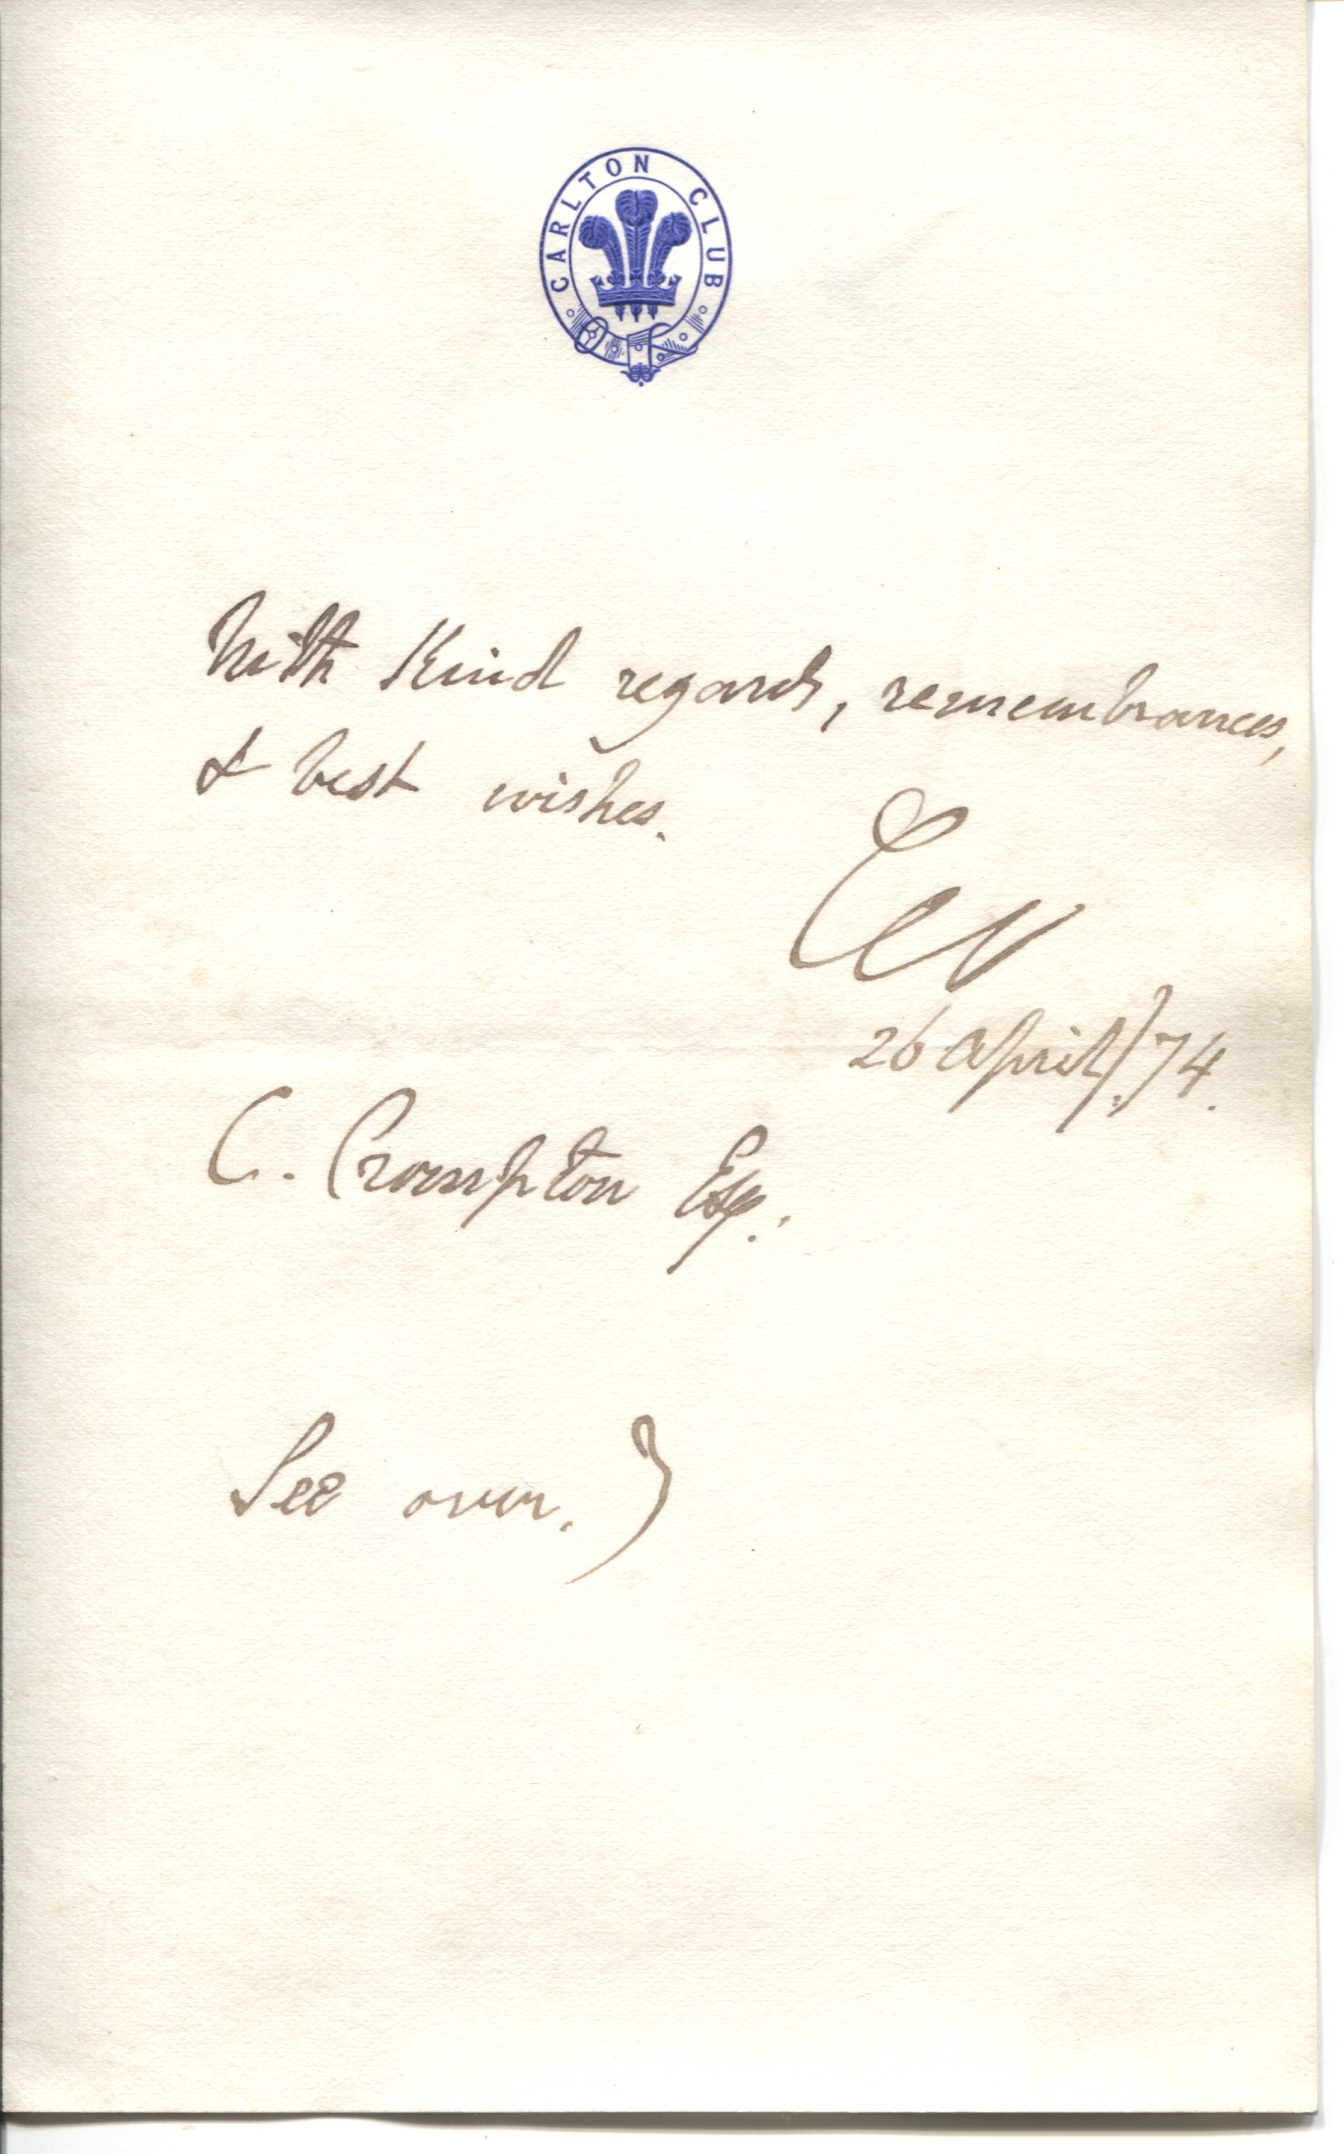 CARLTON CLUB
With Kind regards, remembrances,
& best wishes.
26 April/74.
C. Crompton Esq.
See over.)